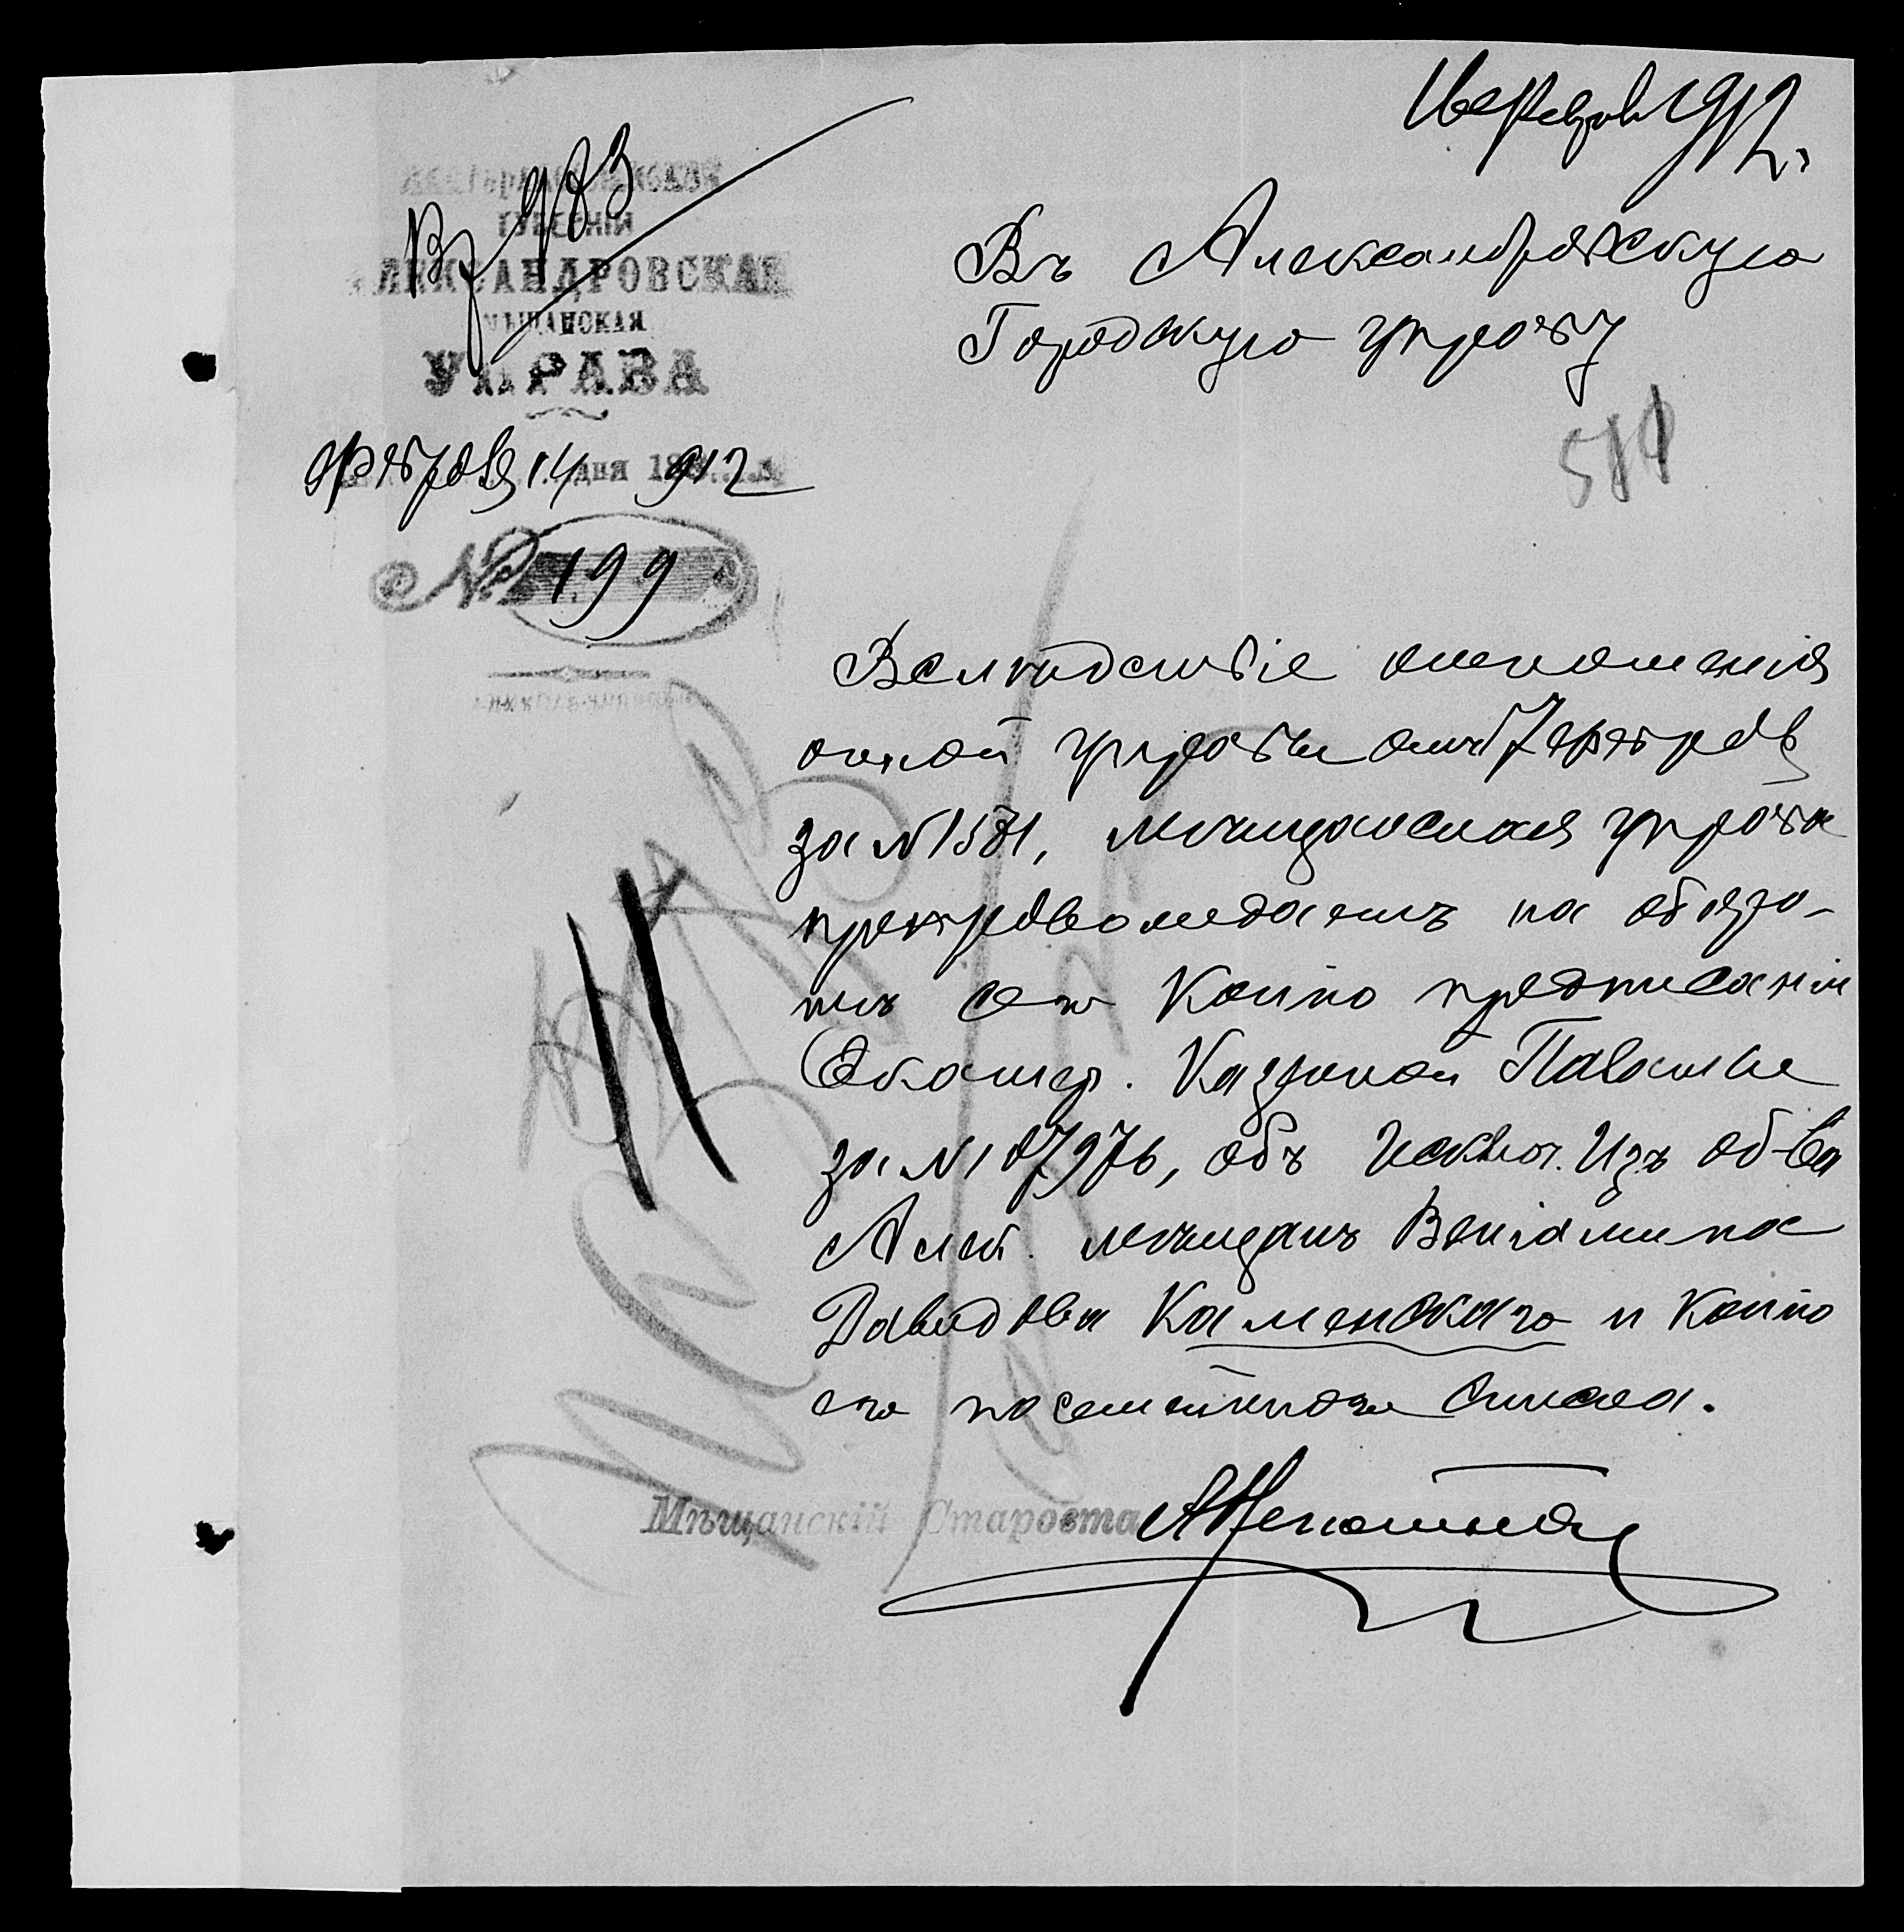 16 февраля 1912.
Вх 983
ГУБЕРНІИ
АЛЕКСАНДРОВСКАЯ
МѢЩАНСКАЯ
УПРАВА
Февраля 14 дня 1912
№ 199
Въ Александровскую
Городскую управу
Вслѣдствіе отношенія
оной управы отъ 7 февраля
за № 1581, мѣщанская управа
препровождаетъ на
при семъ копію предписанія
Екатер. Казенной Палаты
за № 187976, объ исключ. изъ об-ва
Алек. мѣщанъ Веніамина
Давидова Каменскаго и копію
его посемейнаго списка.
Мѣщанскій Староста